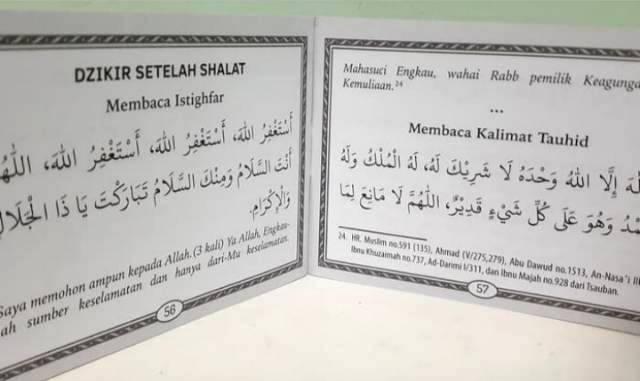 DZIKIR SETELAH SHALAT
Membaca Istighfar
أَسْتَغْفِرُ اللهَ، أَسْتَغْفِرُ اللهَ، أَسْتَغْفِرُ اللهَ،
أَنْتَ السَّلَامُ وَمِنْكَ السَّلَامُ تَبَارَكْتَ يَا ذَا الْجَلَالِ
وَالْإِكْرَامِ.
Saya memohon ampun kepada Allah. (3 kali) Ya Allah, Engkau-
ah sumber keselamatan dan hanya dari-Mu keselamatan.
56
Mahasuci Engkau, wahai Rabb pemilik Keagunga
Kemuliaan.24
...
Membaca Kalimat Tauhid
إِلَّا اللهُ وَحْدَهُ لَا شَرِيْكَ لَهُ، لَهُ الْمُلْكُ وَلَهُ
وَهُوَ عَلَى كُلِّ شَيْءٍ قَدِيْرٌ، اللَّهُمَّ لَا مَانِعَ لِمَا
24. HR. Muslim no.591 (135), Ahmad (V/275,279), Abu Dawud no.1513, An-Nasa'i
Ibnu Khuzaimah no.737, Ad-Darimi I/311, dan Ibnu Majah no.928 dari Tsauban.
57